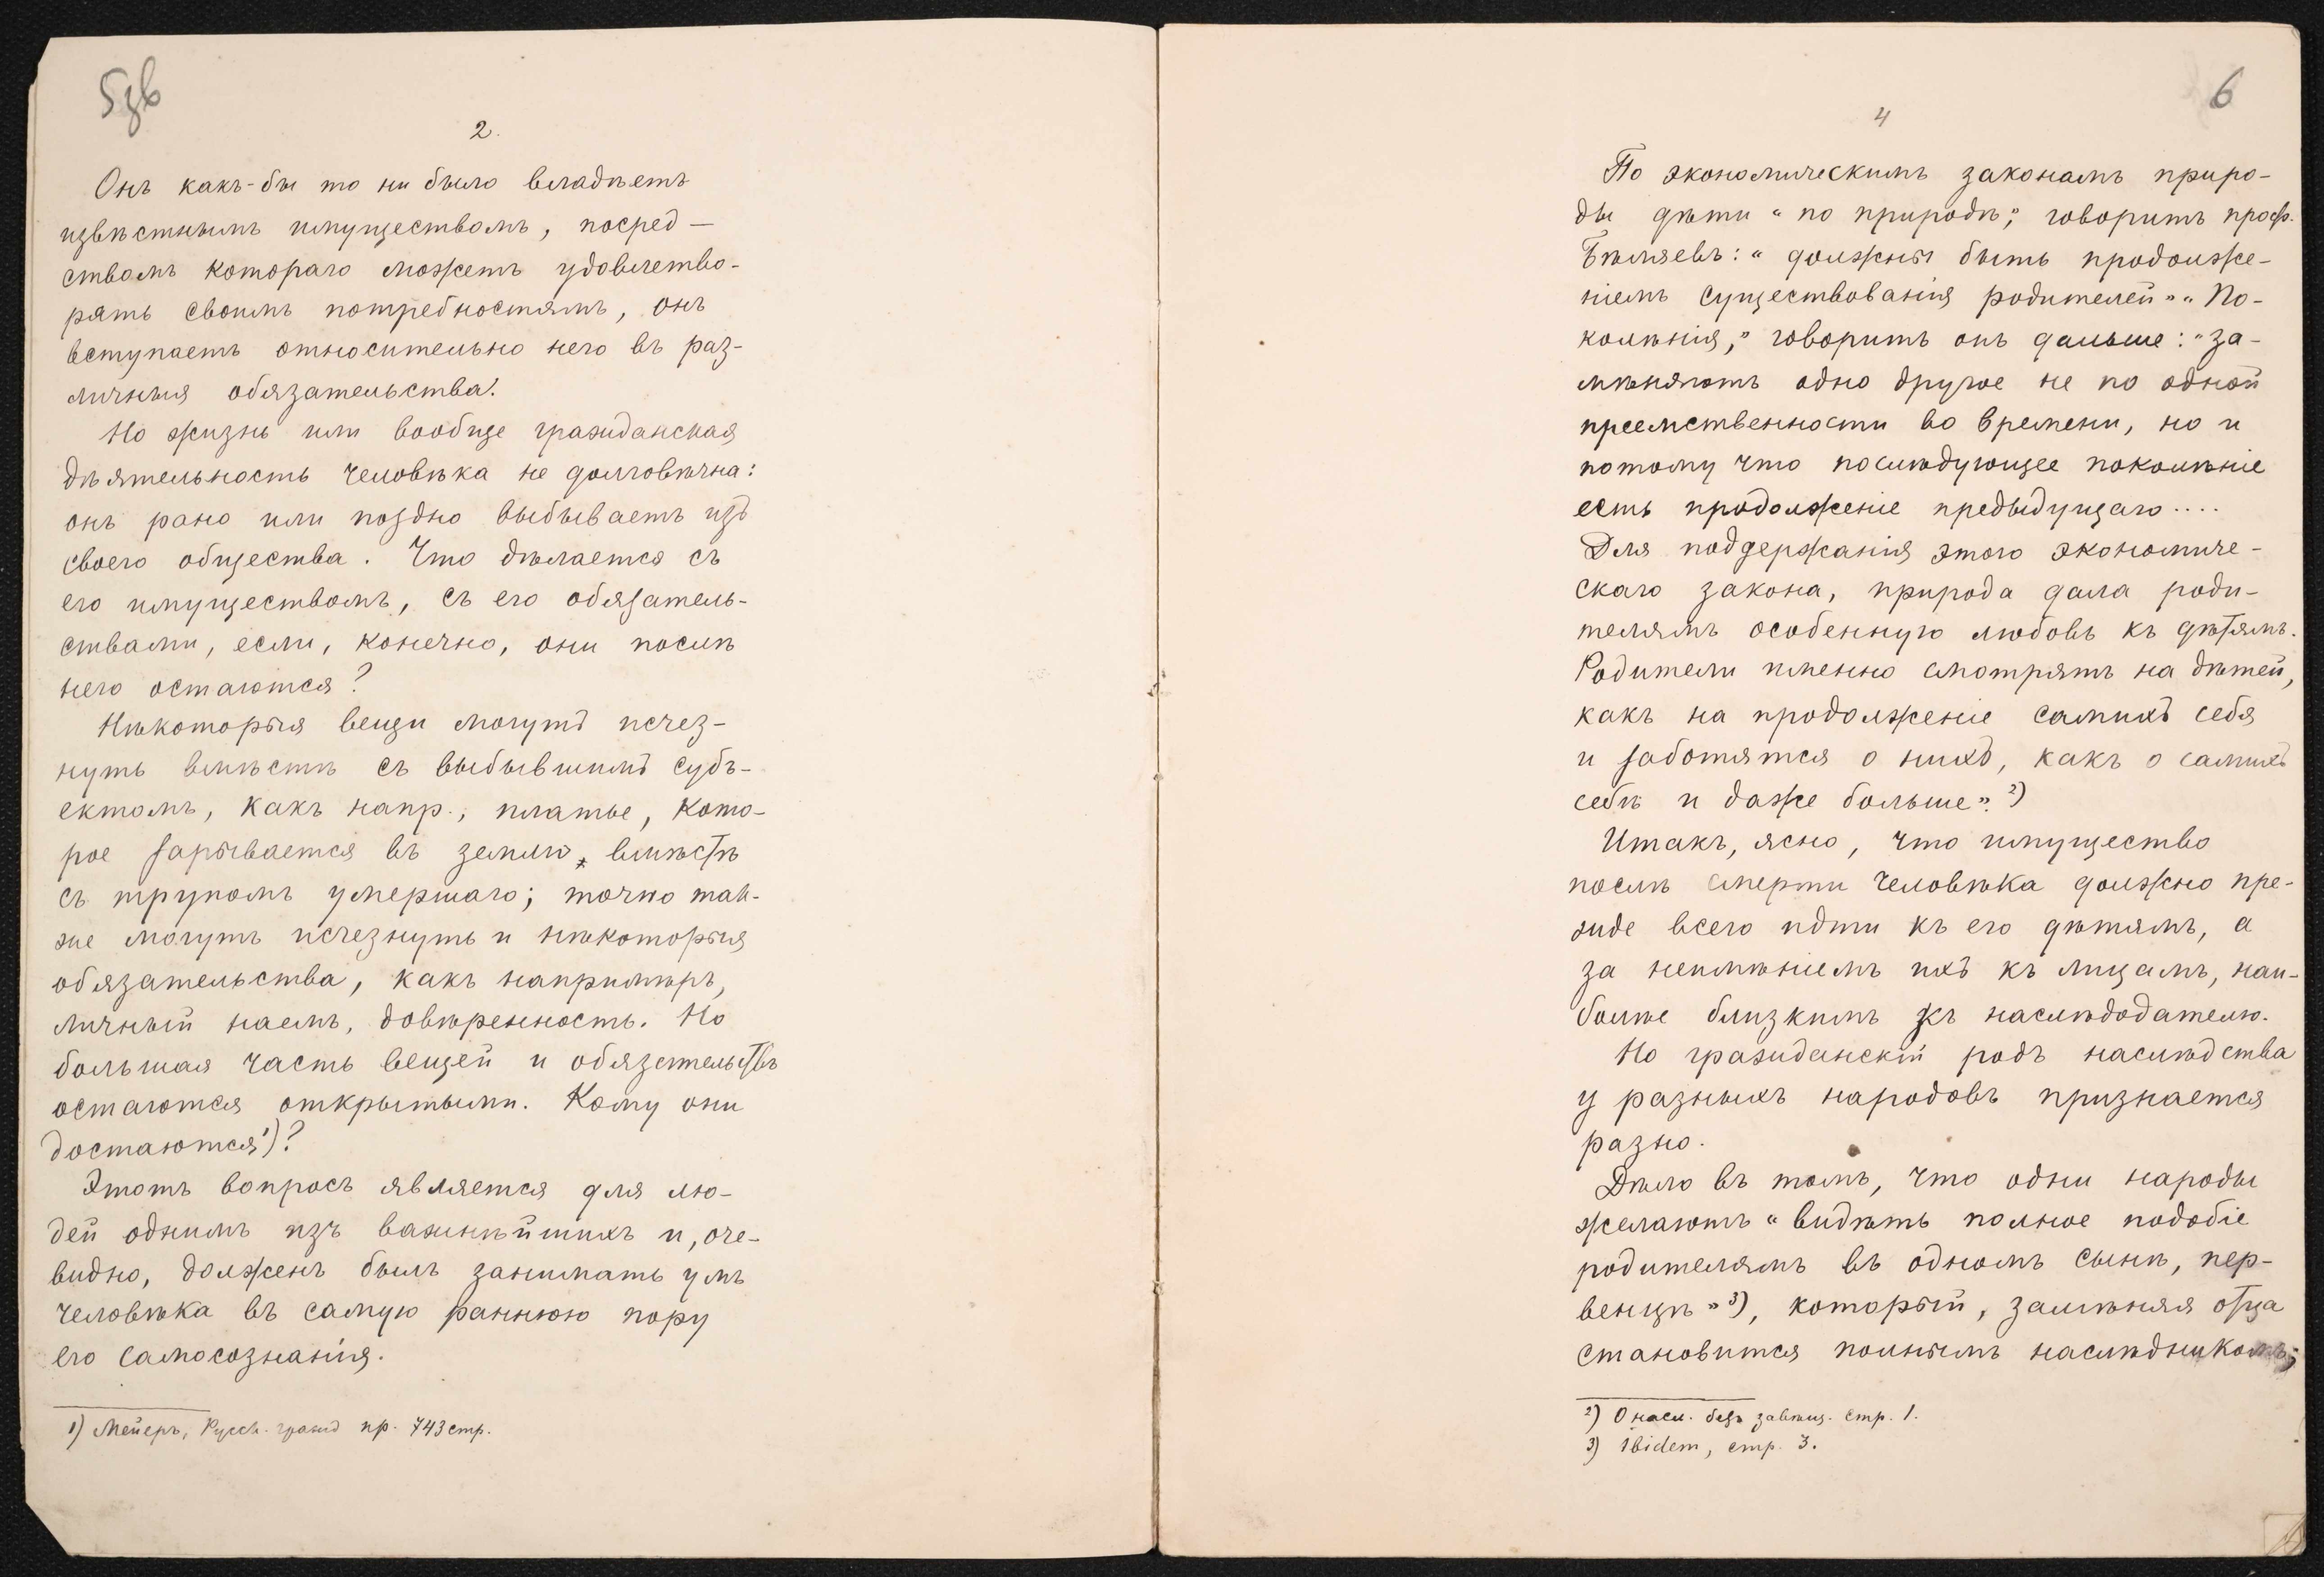 5зв
2.
Онъ какъ-бы то ни было владѣетъ
извѣстнымъ имуществомъ, посред-
ствомъ котораго можетъ удовлетво-
рять своимъ потребностямъ, онъ
вступаетъ относительно него въ раз-
личныя обязательства.
Но жизнь или вообще гражданская
дѣятельность человѣка не долговѣчна:
онъ рано или поздно выбываетъ изъ
своего общества. Что дѣлается съ
его имуществомъ, съ его обязатель-
ствами, если, конечно, они послѣ
него остаются?
Нѣкоторыя вещи могутъ исчез-
нуть вмѣстѣ съ выбывшимъ субъ-
ектомъ, какъ напр., платье, кото-
рое зарывается въ землю вмѣстѣ
съ трупомъ умершаго; точно так-
же могутъ исчезнуть и нѣкоторыя
обязательства, какъ напримѣръ,
личный наемъ, довѣренность. Но
большая часть вещей и обязательствъ
остаются открытыми. Кому они
достаются¹)?
Этотъ вопросъ является для лю-
дей однимъ изъ важнѣйшихъ и, оче-
видно, долженъ былъ занимать умъ
человѣка въ самую раннюю пору
его самосознанія.
1) Мейеръ, Русск. гражд пр. 743 стр.
6
4
По экономическимъ законамъ приро-
ды дѣти "по природѣ", говоритъ проф.
Бѣляевъ: "должны быть продолже-
ніемъ существованія родителей" "По-
колѣнія," говоритъ онъ дальше: "за-
мѣняютъ одно другое не по одной
преемственности во времени, но и
потому что послѣдующее поколѣніе
есть продолженіе предыдущаго....
Для поддержанія этого экономиче-
скаго закона, природа дала роди-
телямъ особенную любовь къ дѣтямъ.
Родители именно смотрятъ на дѣтей,
какъ на продолженіе самихъ себя
и заботятся о нихъ, какъ о самихъ
себѣ и даже больше".²)
Итакъ, ясно, что имущество
послѣ смерти человѣка должно пре-
жде всего идти къ его дѣтямъ, а
за неимѣніемъ ихъ къ лицамъ, наи-
болѣе близкимъ къ наслѣдодателю.
Но гражданскій родъ наслѣдства
у разныхъ народовъ признается
разно.
Дѣло въ томъ, что одни народы
желаютъ "видѣть полное подобіе
родителямъ въ одномъ сынѣ, пер-
венцѣ"³), который, замѣняя отца
становится полнымъ наслѣдникомъ;
2) О насл. безъ завѣщ. стр. 1.
3) ibidem, стр. 3.